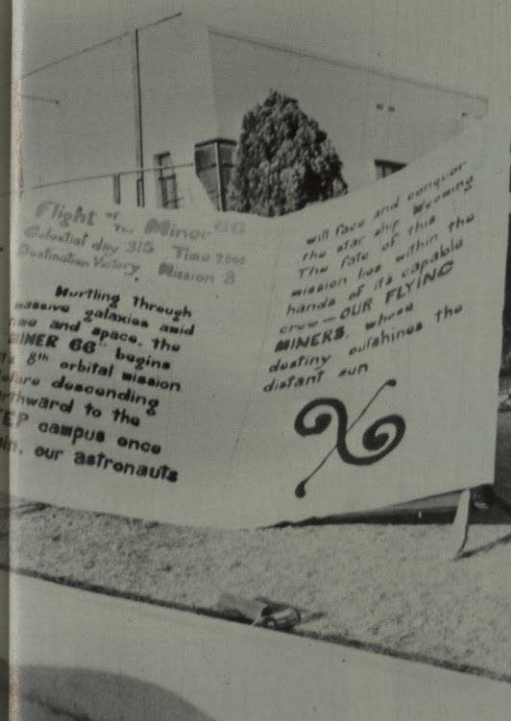 Flight of the Miner 66
Celestial day 315 Time 2000
Destination Victory, Mission 8
Hurtling through
massive galaxies amid
time and space, the
MINER 66" begins
8th orbital mission
before descending
earthward to the
campus once
our astronauts
will face and conquer
the star ship Wyoming
The fate of this
mission lies within the
hands of its capable
crew—OUR FLYING
MINERS, whose
destiny outshines the
distant sun